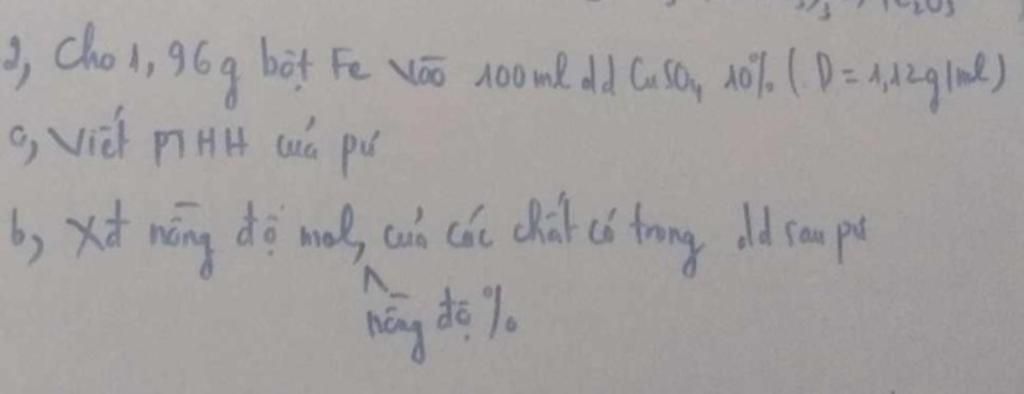 2, Cho 1,96g bột Fe vào 100ml dd CuSO4 10% (D = 1,12g/ml)
a, Viết PTHH của pứ
b, Xđ nồng độ mol, của các chất có trong dd sau pứ
nồng độ %